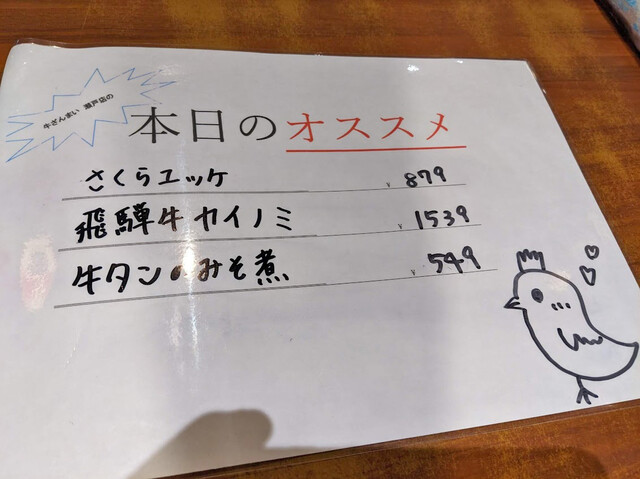 牛ざんまい 瀬戸店の
本日のオススメ
さくらユッケ ¥ 879
飛騨牛カイノミ ¥ 1539
牛タンのみそ煮 ¥ 549